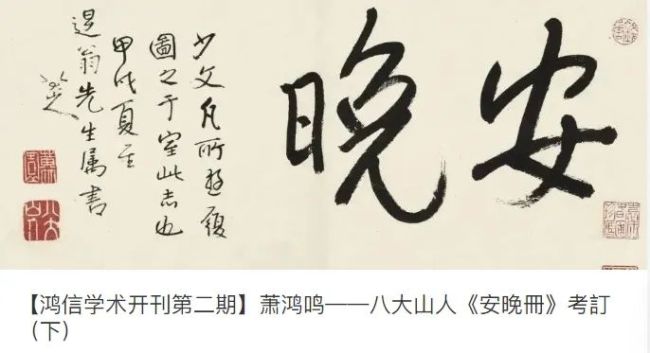 安晚
少文凡所遊履
圖之于室此志也
甲戌夏至
退翁先生属書
八大山人
【鸿信学术开刊第二期】萧鸿鸣——八大山人《安晚冊》考訂
（下）